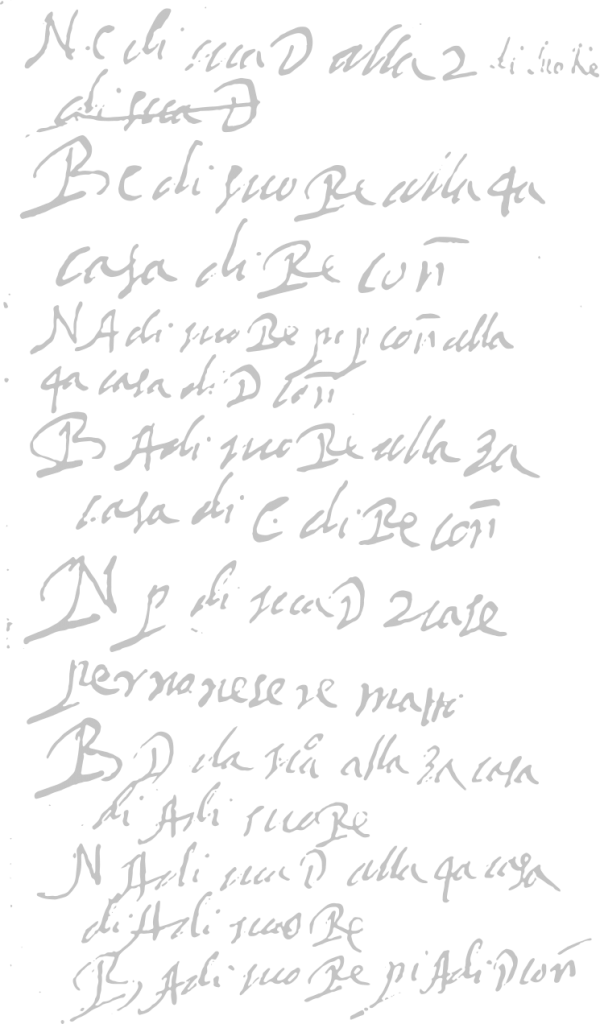 N. C di sua D alla 2 di suo Re
di sua D
B C di suo Re alla 4a
casa di Re con̄
N A di suo Re pi p con̄ alla
4a casa di D con̄
B A di suo Re alla 3a
casa di C. di Re con̄
N p di sua D 2 case
per no nesere matti
B D da sca alla 3a casa
di A di suo Re
N A di sua D alla 4a casa
di A di suo Re
B A di suo Re pi A di D con̄